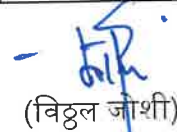 (विठ्ठल जोशी)